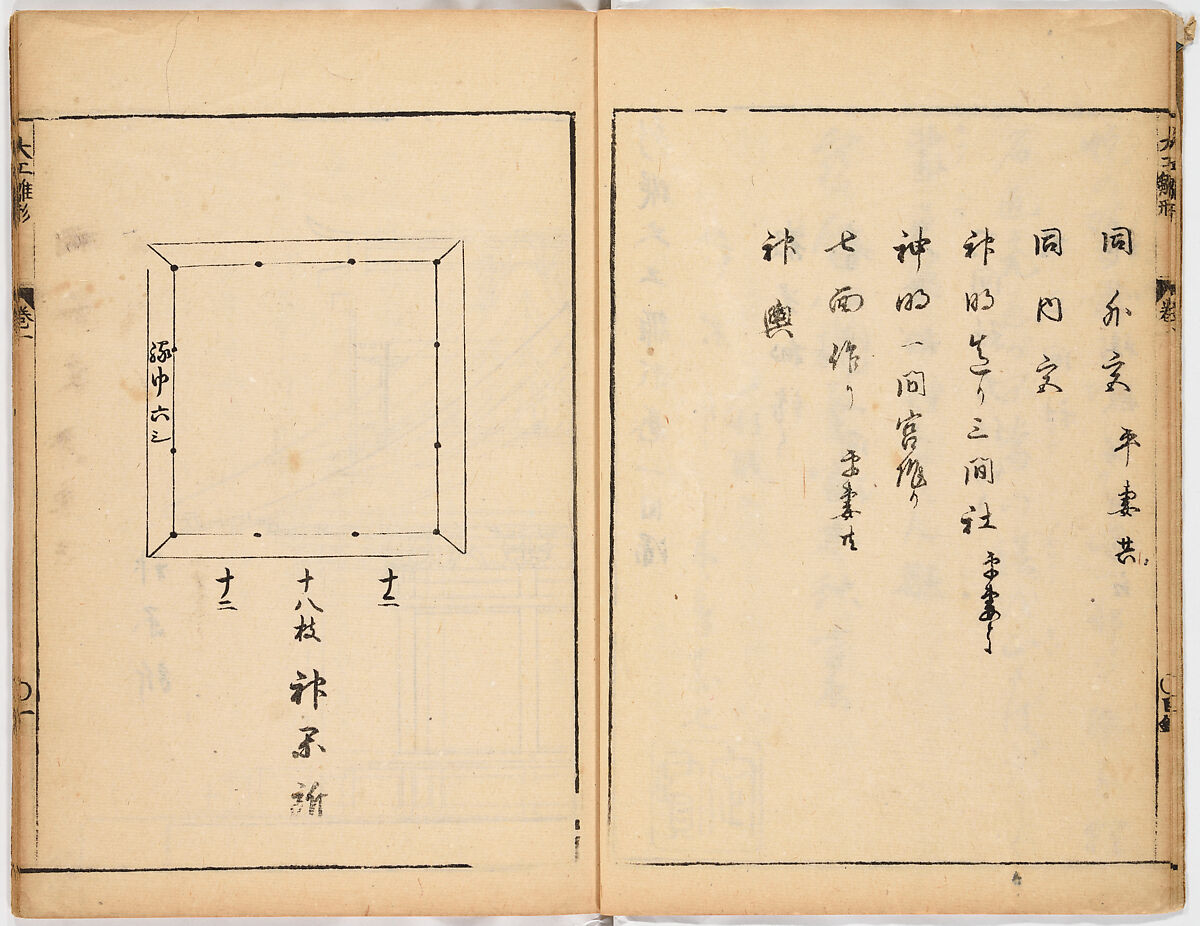 大工雛形
巻一
目録
同外宮 平妻共
同内宮
神明造り三間社 平妻共
神明一間宮作り
七面作り 平妻共
神輿
十二
十八枝
十二
神楽所
椽巾六シ
大工雛形
巻一
〇一